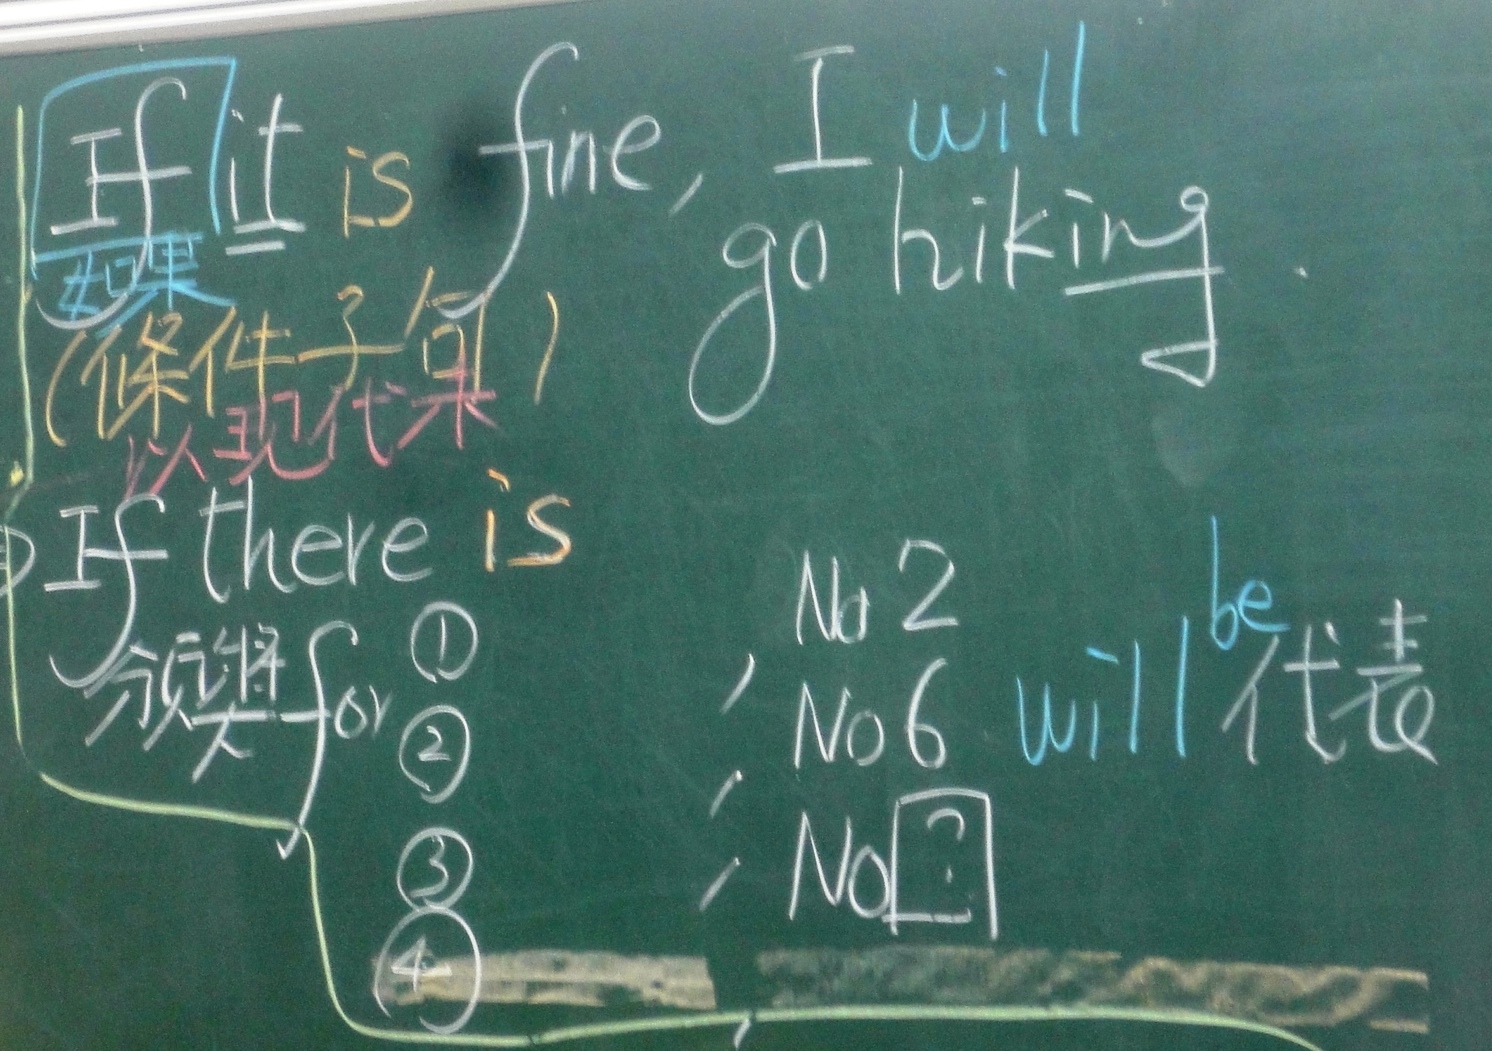 If it is fine, I will
go hiking.
如果
(條件子句)
以现代未
If there is
頒獎 for ①
②
③
④
, No 2
, No 6 will be 代表
, No ?